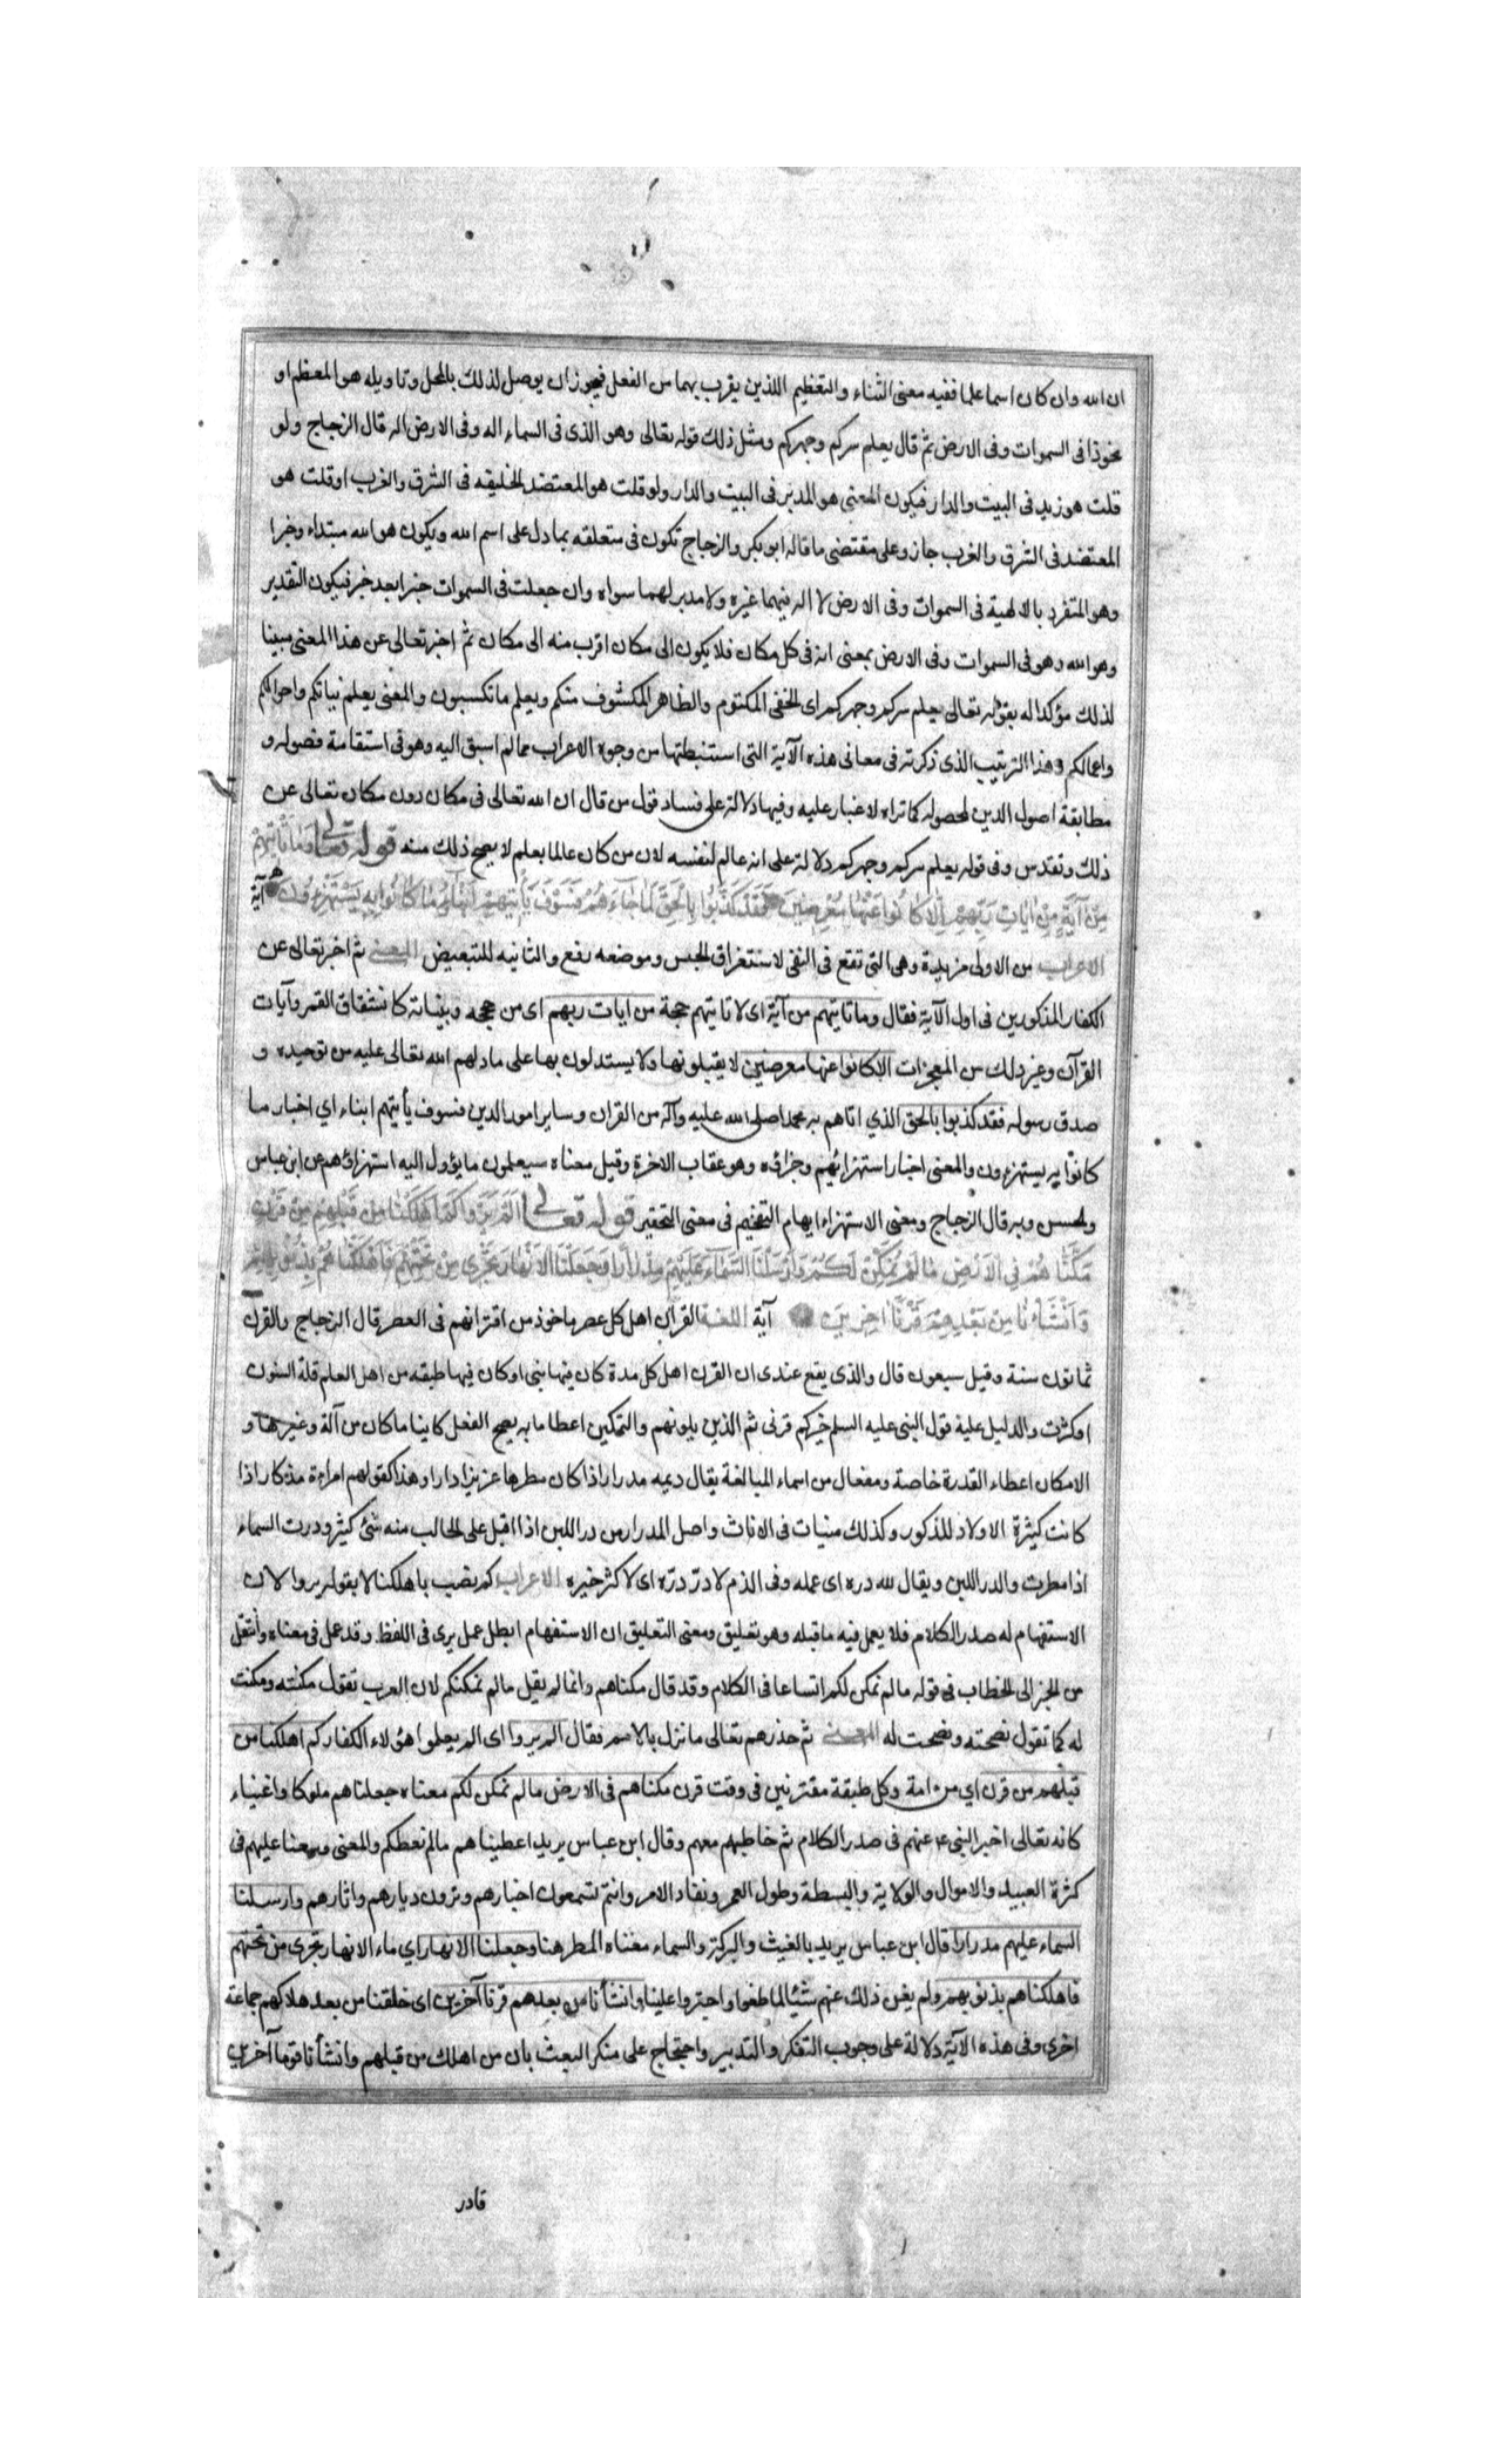 ان الله وان كان اسما علما ففيه معنى الثناء والتعظيم اللذين يقرب بهما من الفعل فيجوز ان يوصل لذلك بالمحل وتاويله هو المعظم او
نحو ذا فى السموات وفى الارض ثم قال يعلم سركم وجهركم ومثل ذلك قوله تعالى وهو الذى فى السماء اله وفى الارض اله قال الزجاج ولو
قلت هو زيد فى البيت والدار فيكون المعنى هو المدبر فى البيت والدار ولو قلت هو المعتضد الخليفه فى الشرق والغرب او قلت هو
المعتضد فى الشرق والغرب جاز وعلى مقتضى ما قاله ابو بكر والزجاج تكون فى متعلقه بما دل على اسم الله ويكون هو الله مبتداء وخبرا
وهو المتفرد بالالهية فى السموات وفى الارض لا اله فيهما غيره ولا مدبر لهما سواه وان جعلت فى السموات خبرا بعد خبر فيكون التقدير
وهو الله وهو فى السموات وفى الارض بمعنى انه فى كل مكان فلا يكون الى مكان اقرب منه الى مكان ثم اخبر تعالى عن هذا المعنى مبينا
لذلك مؤكدا له بقوله تعالى يعلم سركم وجهركم اى الخفى المكتوم والظاهر المكشوف منكم ويعلم ما تكسبون والمعنى يعلم نياتكم واحوالكم
واعمالكم وهذا الترتيب الذى ذكرته فى معانى هذه الآية التى استنبطتها من وجوه الاعراب مما لم اسبق اليه وهو فى استقامة فصوله و
مطابقة اصول الدين لمحصوله كما تراه لا غبار عليه وفيها دلالة على فساد قول من قال ان الله تعالى فى مكان دون مكان تعالى عن
ذلك وتقدس وفى قوله يعلم سركم وجهركم دلالة على انه عالم لنفسه لان من كان عالما بعلم لا يصح ذلك منه قوله تعالى وَمَا تَأْتِيهِمْ
مِنْ آيَةٍ مِنْ آيَاتِ رَبِّهِمْ اِلَّا كَانُوا عَنْهَا مُعْرِضِينَ فَقَدْ كَذَّبُوا بِالْحَقِّ لَمَّا جَاءَهُمْ فَسَوْفَ يَأْتِيهِمْ أَنْبَاءُ مَا كَانُوا بِهِ يَسْتَهْزِءُونَ آية
الاعراب من الاولى مزيدة وهى التى تقع فى النفى لاستغراق الجنس وموضعه رفع والثانيه للتبعيض المعنى ثم اخبر تعالى عن
الكفار المذكورين فى اول الآية فقال وما تاتيهم من آية اى لا تاتيهم حجة من ايات ربهم اى من حججه وبيناته كانشقاق القمر وآيات
القرآن وغير ذلك من المعجزات الا كانوا عنها معرضين لا يقبلونها ولا يستدلون بها على ما دلهم الله تعالى عليه من توحيده و
صدق رسوله فقد كذبوا بالحق الذي اتاهم به محمد صلى الله عليه وآله من القران وساير امور الدين فسوف يأتيهم ابناء اي اخبار ما
كانوا به يستهزءون والمعنى اخبار استهزائهم وجزاؤه وهو عقاب الاخرة وقيل معناه سيعلمون ما يؤول اليه استهزاؤهم عن ابن عباس
والحسن وبه قال الزجاج ومعنى الاستهزاء ايهام التفخيم فى معنى التحقير قوله تعالى اَلَمْ يَرَوْا كَمْ اَهْلَكْنَا مِنْ قَبْلِهِمْ مِنْ قَرْنٍ
مَكَّنَّاهُمْ فِي الْاَرْضِ مَا لَمْ نُمَكِّنْ لَكُمْ وَأَرْسَلْنَا السَّمَاءَ عَلَيْهِمْ مِدْرَارًا وَجَعَلْنَا الْاَنْهَارَ تَجْرِي مِنْ تَحْتِهِمْ فَاَهْلَكْنَاهُمْ بِذُنُوبِهِمْ
وَاَنْشَأْنَا مِنْ بَعْدِهِمْ قَرْنًا اٰخَرِينَ آية اللغة القرن اهل كل عصر ماخوذ من اقترانهم فى العصر قال الزجاج والقرن
ثمانون سنة وقيل سبعون قال والذى يقع عندى ان القرن اهل كل مدة كان فيها نبى او كان فيها طبقه من اهل العلم قلة السنون
او كثرت والدليل عليه قول النبى عليه السلم خيركم قرنى ثم الذين يلونهم والتمكين اعطا ما به يصح الفعل كاينا ما كان من آلة وغيرها و
الامكان اعطاء القدرة خاصة ومفعال من اسماء المبالغة يقال ديمه مدرار اذا كان مطرها غزيزا دارا وهذا كقولهم امراءة مذكار اذا
كانت كثيرة الاولاد للذكور وكذلك منيات فى الاناث واصل المدرار من در اللبن اذا اقبل على الحالب منه شئ كثير ودرت السماء
اذا مطرت والدر اللبن ويقال لله دره اى عمله وفى الذم لا درّ درّه اى لا كثر خيره الاعراب كم نصب باهلكنا لا بقوله يروا لان
الاستفهام له صدر الكلام فلا يعمل فيه ما قبله وهو تعليق ومعنى التعليق ان الاستفهام ابطل عمل يرى فى اللفظ وقد عمل فى معناه وانتقل
من الخبر الى الخطاب فى قوله ما لم نمكن لكم اتساعا فى الكلام وقد قال مكناهم وانما لم يقل ما لم نمكنكم لان العرب تقول مكنته ومكنت
له كما تقول نصحته ونصحت له المعنى ثم حذرهم تعالى ما نزل بالامم فقال الم يروا اى الم يعلموا هؤلاء الكفار كم اهلكنا من
قبلهم من قرن اي من امة وكل طبقة مقترنين فى وقت قرن مكناهم فى الارض ما لم نمكن لكم معناه جعلناهم ملوكا واغنياء
كانه تعالى اخبر النبى ع عنهم فى صدر الكلام ثم خاطبهم معهم وقال ابن عباس يريد اعطيناهم ما لم نعطكم والمعنى وسعنا عليهم فى
كثرة العبيد والاموال والولاية والبسطة وطول العمر ونفاد الامر وانتم تسمعون اخبارهم وترون ديارهم واثارهم وارسلنا
السماء عليهم مدرارا قال ابن عباس يريد بالغيث والبركة والسماء معناه المطر هنا وجعلنا الانهار اي ماء الانهار تجرى من تحتهم
فاهلكناهم بذنوبهم ولم يغن ذلك عنهم شيئا لما طغوا واجتروا علينا وانشأنا من بعدهم قرنا آخرين اى خلقنا من بعد هلاكهم جماعة
اخرى وفى هذه الآية دلالة على وجوب التفكر والتدبير واحتجاج على منكر البعث بان من اهلك من قبلهم وانشأنا قوما آخرين
قادر